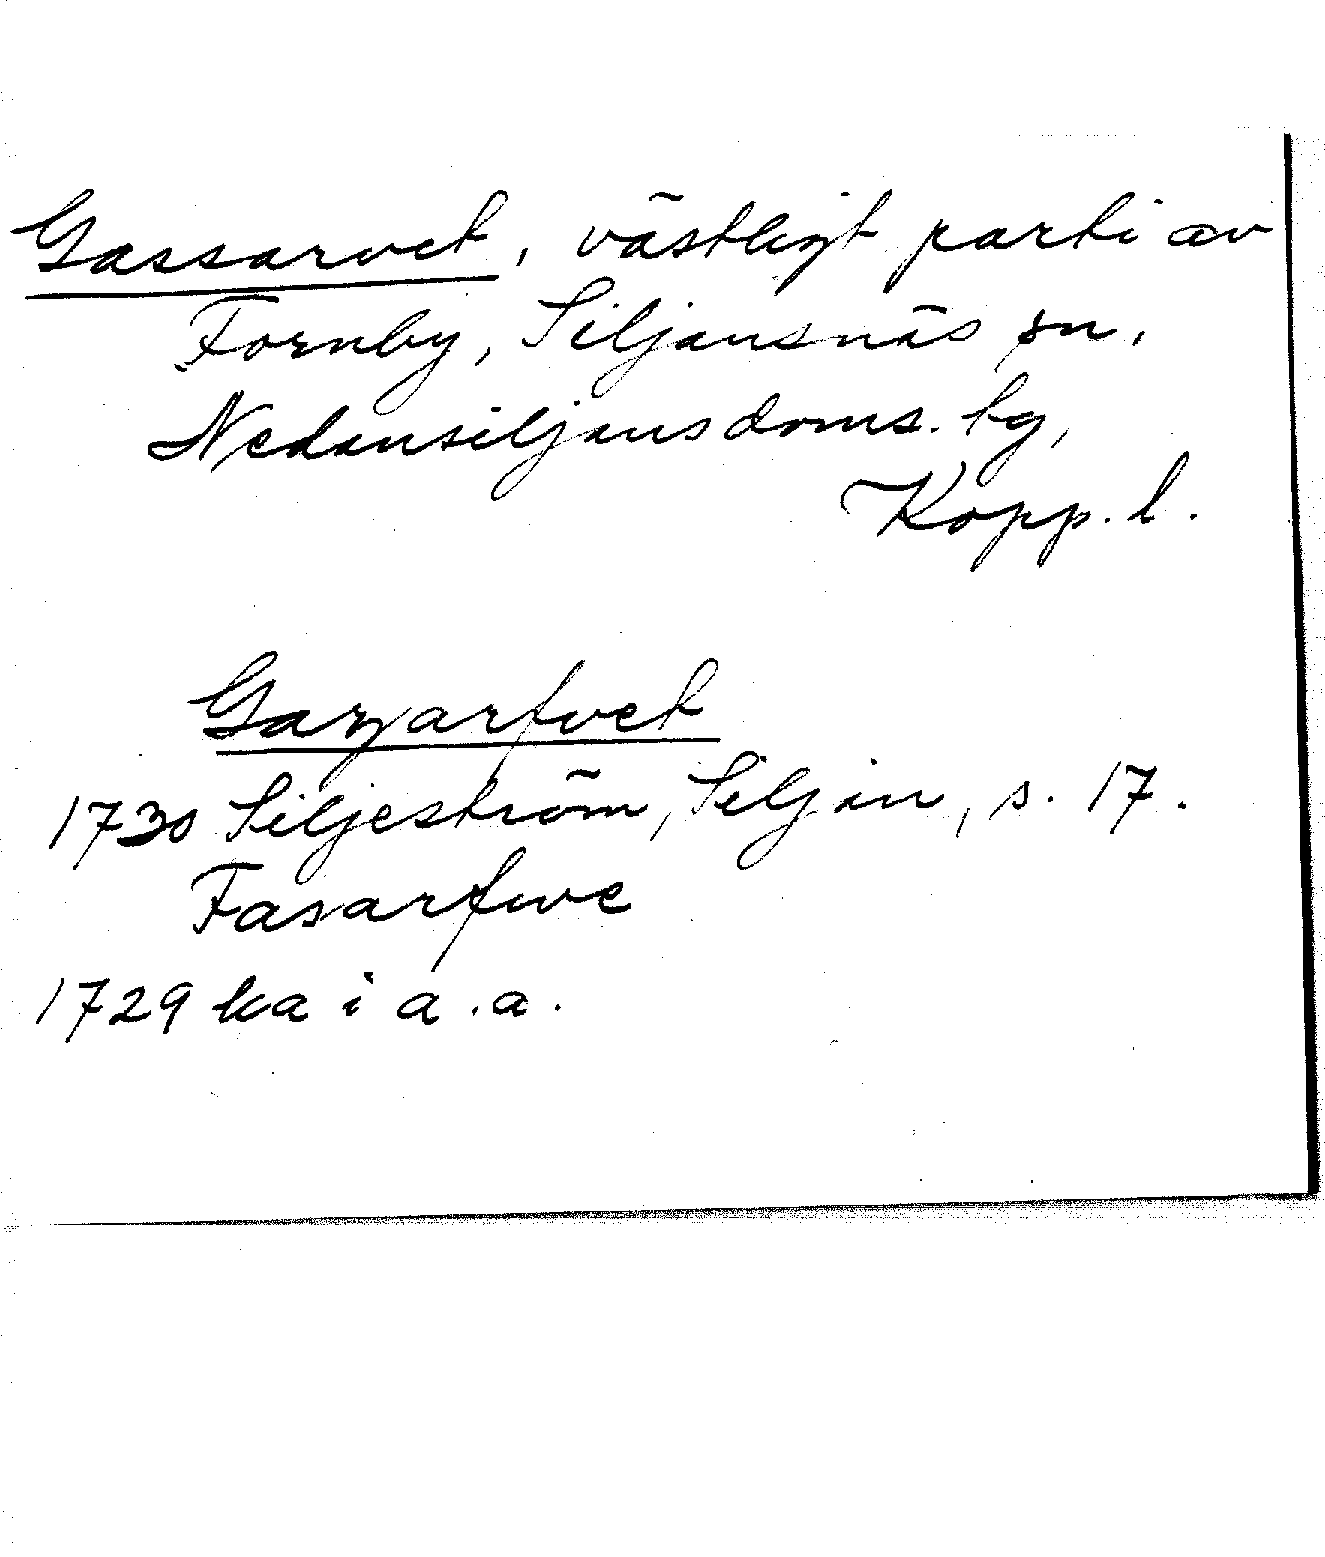 Gassarvet, västligt parti av
Fornby, Siljansnäs sn,
Nedansiljans doms. bg,
Kopp. l.
Gazarfvet
1730 Siljeström, Siljan, s. 17.
Fasarfwe
1729 ka i a.a.